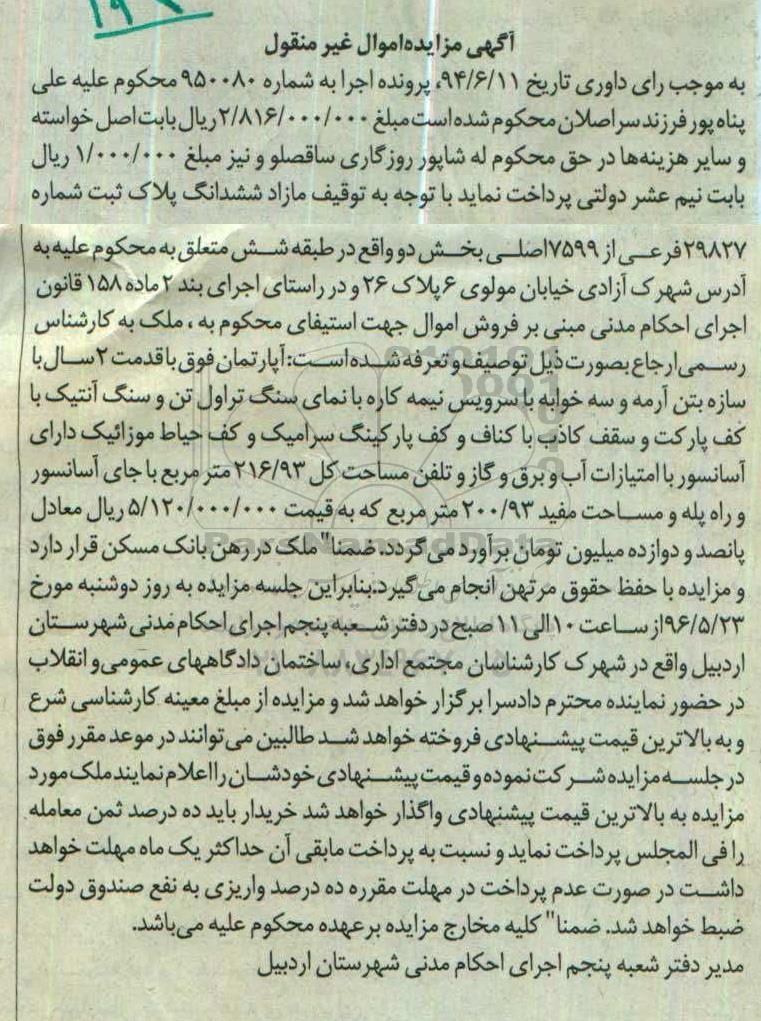 آگهی مزایده‌اموال غیر منقول
به موجب رای داوری تاریخ ۹۴/۶/۱۱، پرونده اجرا به شماره ۹۵۰۰۸۰ محکوم علیه علی
پناه پور فرزند سراصلان محکوم شده‌است مبلغ ۲/۸۱۶/۰۰۰/۰۰۰ ریال بابت اصل خواسته
و سایر هزینه‌ها در حق محکوم له شاپور روزگاری ساقصلو و نیز مبلغ ۱/۰۰۰/۰۰۰ ریال
بابت نیم عشر دولتی پرداخت نماید با توجه به توقیف مازاد ششدانگ پلاک ثبت شماره
۲۹۸۲۷فرعی از ۷۵۹۹اصلی بخش دو واقع در طبقه شش متعلق به محکوم علیه به
آدرس شهرک آزادی خیابان مولوی ۶ پلاک ۲۶ و در راستای اجرای بند ۲ ماده ۱۵۸ قانون
اجرای احکام مدنی مبنی بر فروش اموال جهت استیفای محکوم به ، ملک به کارشناس
رسمی ارجاع بصورت ذیل توصیف و تعرفه شده‌است: آپارتمان فوق با قدمت ۲ سال با
سازه بتن آرمه و سه خوابه با سرویس نیمه کاره با نمای سنگ تراول تن و سنگ آنتیک با
کف پارکت و سقف کاذب با کناف و کف پارکینگ سرامیک و کف حیاط موزائیک دارای
آسانسور با امتیازات آب و برق و گاز و تلفن مساحت کل ۲۱۶/۹۳ متر مربع با جای آسانسور
و راه پله و مساحت مفید ۲۰۰/۹۳ متر مربع که به قیمت ۵/۱۲۰/۰۰۰/۰۰۰ ریال معادل
پانصد و دوازده میلیون تومان برآورد می‌گردد. ضمنا" ملک در رهن بانک مسکن قرار دارد
و مزایده با حفظ حقوق مرتهن انجام می‌گیرد.بنابراین جلسه مزایده به روز دوشنبه مورخ
۹۶/۵/۲۳از ساعت ۱۰ الی ۱۱ صبح در دفتر شعبه پنجم اجرای احکام مدنی شهرستان
اردبیل واقع در شهرک کارشناسان مجتمع اداری، ساختمان دادگاههای عمومی و انقلاب
در حضور نماینده محترم دادسرا برگزار خواهد شد و مزایده از مبلغ معینه کارشناسی شرع
و به بالاترین قیمت پیشنهادی فروخته خواهد شد طالبین می‌توانند در موعد مقرر فوق
در جلسه مزایده شرکت نموده و قیمت پیشنهادی خودشان را اعلام نمایند ملک مورد
مزایده به بالاترین قیمت پیشنهادی واگذار خواهد شد خریدار باید ده درصد ثمن معامله
را فی المجلس پرداخت نماید و نسبت به پرداخت مابقی آن حداکثر یک ماه مهلت خواهد
داشت در صورت عدم پرداخت در مهلت مقرره ده درصد واریزی به نفع صندوق دولت
ضبط خواهد شد. ضمنا" کلیه مخارج مزایده برعهده محکوم علیه می‌باشد.
مدیر دفتر شعبه پنجم اجرای احکام مدنی شهرستان اردبیل
ParsNamadData